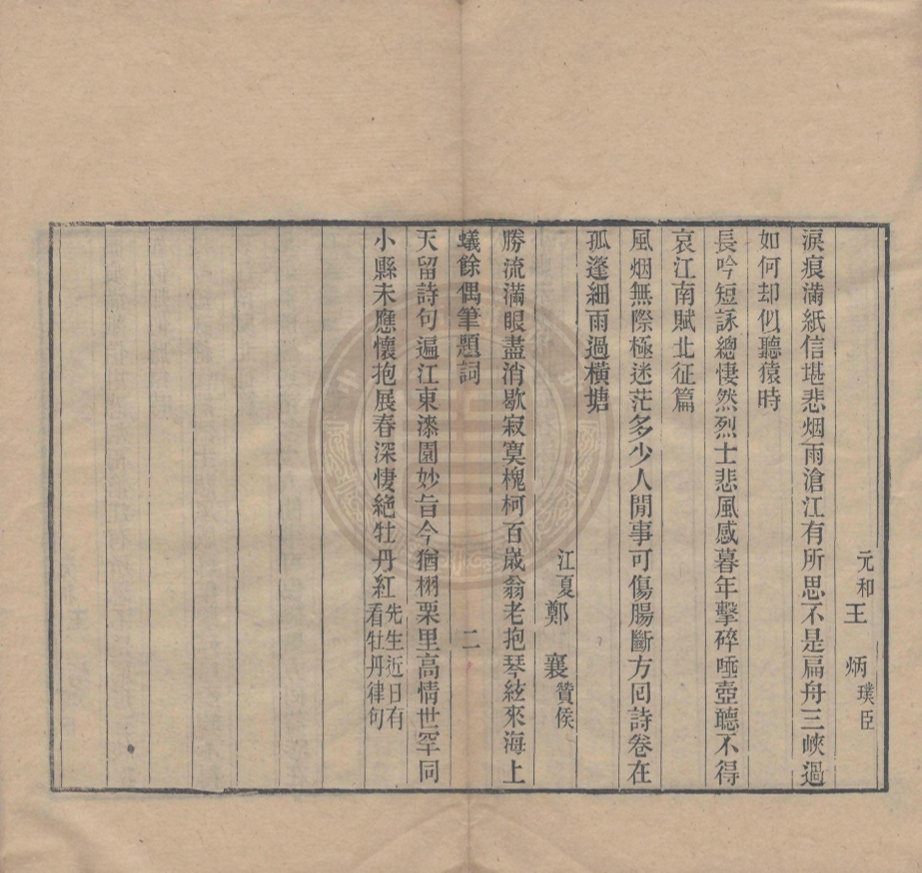 元和王 炳璞臣
淚痕滿紙信堪悲烟雨滄江有所思不是扁舟三峽過
如何却似聽猿時
長吟短詠總悽然烈士悲風感暮年擊碎唾壺聽不得
哀江南賦北征篇
風烟無際極迷茫多少人閒事可傷腸斷方回詩卷在
孤篷細雨過橫塘
江夏鄭 襄贊侯
勝流滿眼盡消歇寂寞槐柯百歲翁老抱琴絃來海上
天留詩句遍江東漆園妙旨今猶栩栗里高情世罕同
小縣未應懷抱展春深悽絶牡丹紅先生近日有看牡丹律句
蟻餘偶筆題詞 二